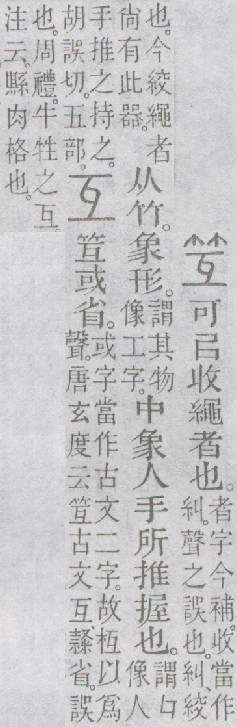 可㠯收繩者也。者字今補。收當作
糾。聲之誤也。糾、絞
也。今絞繩者
尚有此器。从竹。象形。謂其物
像工字。中象人手所推握也。謂
像人
手推之持之。
胡誤切。五部。互 或省。或字當作古文二字。故枑以爲
聲。唐玄度云。古文互。隸省。誤
也。周禮。牛牲之互
注云。縣肉格也。